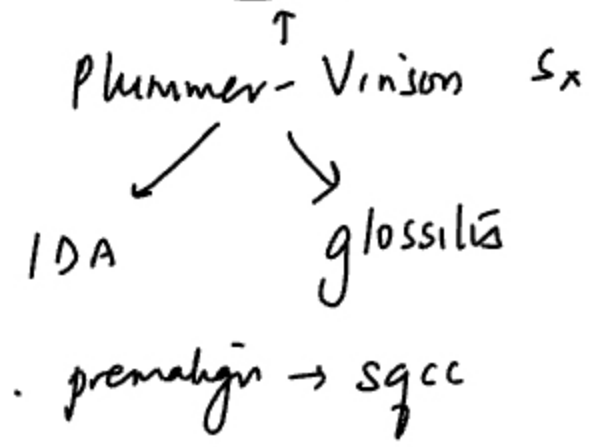 ↑
Plummer-Vinson Sx
↙ ↘
IDA glossitis
. premalign → sqcc